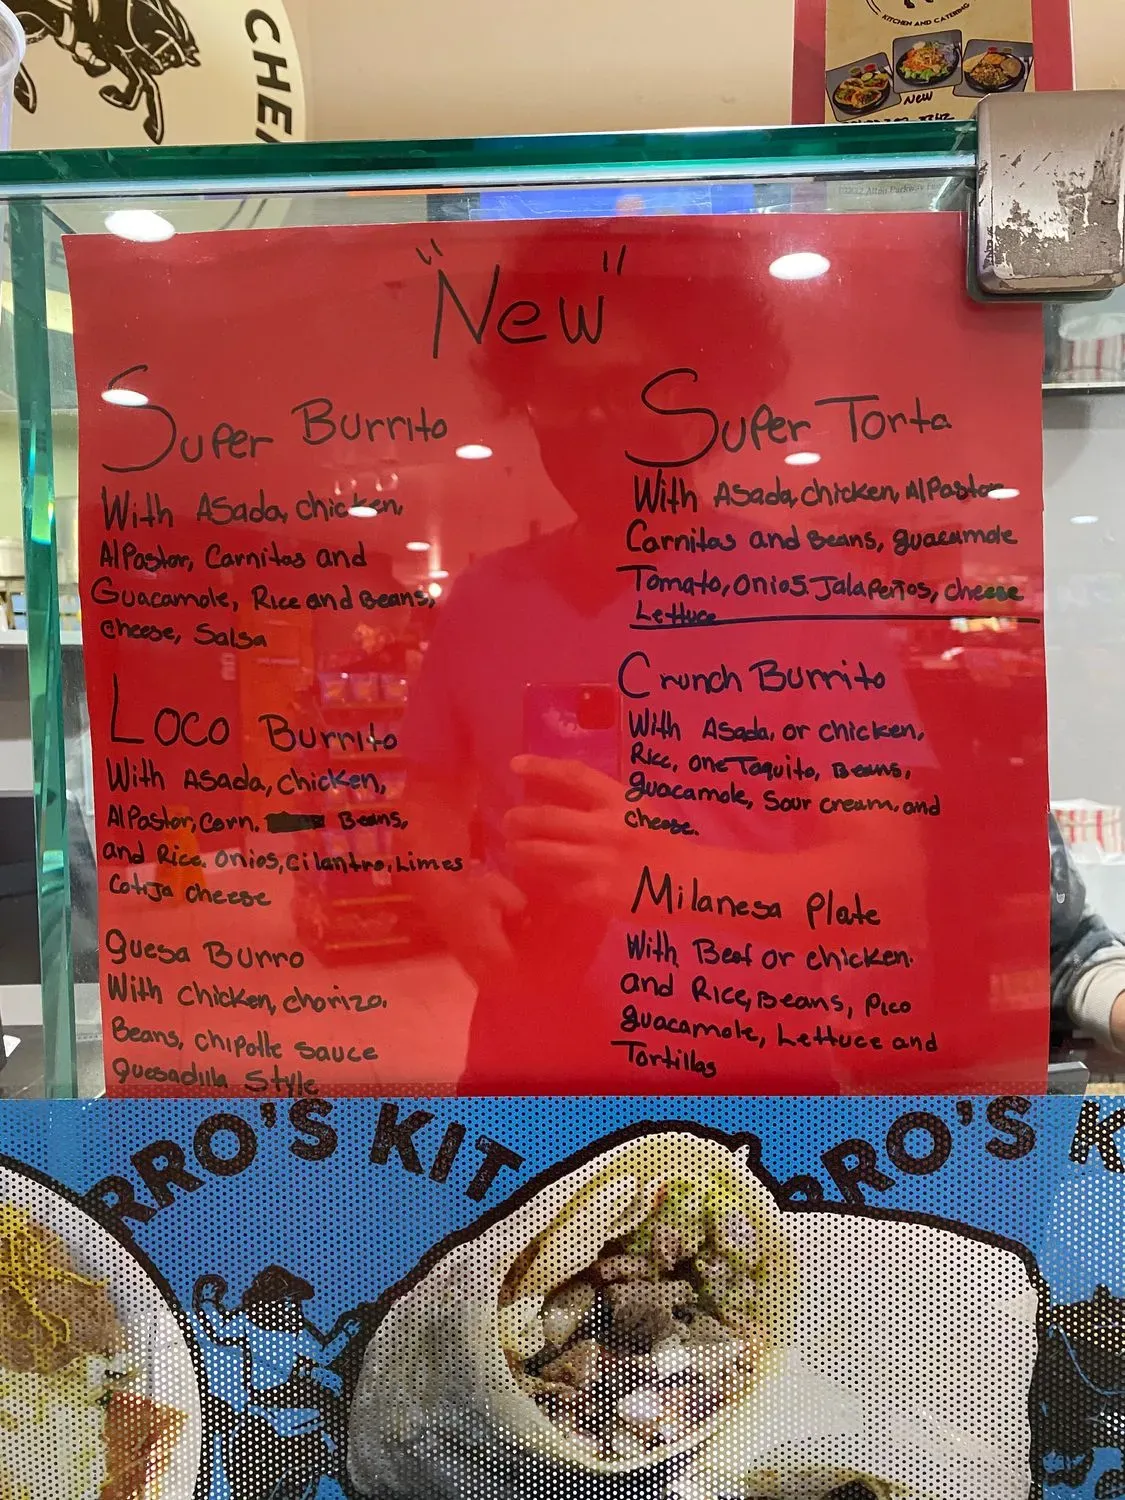 CHE
KITCHEN AND CATERING
NEW
"New"
Super Burrito
With Asada, chicken,
AlPastor, Carnitas and
Guacamole, Rice and Beans,
cheese, Salsa
Loco Burrito
With Asada, Chicken,
AlPastor, Corn. Beans,
and Rice. onios, cilantro, Limes
Cotija cheese
quesa Burro
With chicken, chorizo,
Beans, chipotle sauce
quesadilla Style
Super Torta
With Asada, chicken, AlPastor
Carnitas and Beans, guacamole
Tomato, onios. Jalapeños, cheese
Lettuce
Crunch Burrito
With Asada, or chicken,
Rice, one Taquito, Beans,
guacamole, Sour cream. and
cheese.
Milanesa Plate
With Beef or chicken.
and Rice, Beans, Pico
guacamole, Lettuce and
Tortillas
RRO'S KIT
RRO'S K